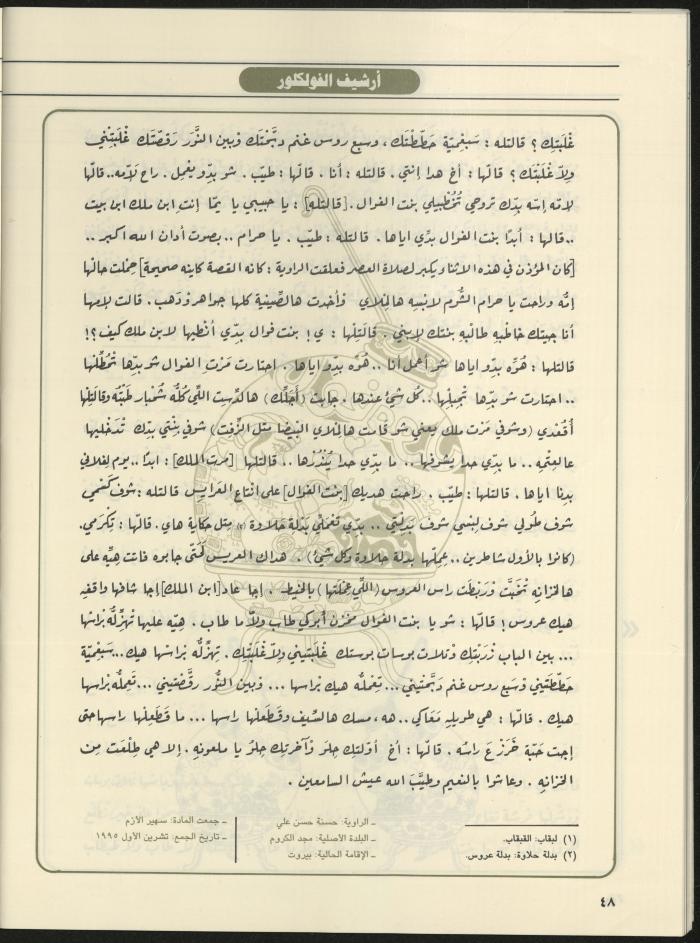 أرشيف الفولكلور
غْلَبتِك ؟ قالتله : سَبعْمِيّة حَطّطْتَك، وسبع روس غنم دبَّحْتَك وْبين النَّوَر رَقصّتَك غْلَبتِنْي
ولاّ غْلَبْتَك ؟ قالّها : أخ هدا إنتي . قالتله : أنا . قالّها : طيّب . شو بدّو يعمل . راح لَأمه.. قالّها
لامّه إسّه بِدّك تروحي تُخْطُبيلي بنت الفوال . [قالتله] : يا حبيبي يا يمّا إنت ابن ملك ابن بيت
.. قالها : أبدًا بنت الفوال بدّي اياها . قالتله : طيّب . يا حرام .. بصوت أدان الله اكبر ..
[كان المؤذن في هذه الاثناء يكبر لصلاة العصر فعلقت الراوية : كانه القصة كاينه صحيحة] حِمْلت حالْها
إمُّه وراحت يا حرام الشُّوم لابْنِيه هالِمْلاي وأخدت هالصّينية كلها جواهر ودهب . قالت لإمها
أنا جيتك خاطْبه طالْبه بِنتك لإبني . قالَتِلْها : ي ! بنت فوال بدّي أنْطيها لابن ملك كيف ؟!
قالتلها : هُوِّه بِدّو اياها شو أعمل أنا .. هُوِّه بدّو اياها . احتارت مَرْت الفوال شو بدّها تْحُطِّلْها
.. احتارت شو بدّها تْجِبِلْها .. كل شيْ عندها . جابت (أَجَلِّك) هالدِّست اللّي كُلُّه شْحْبار طَبَّتُه وقالَتِلْها
أُقْعُدي (وشوفي مَرْت ملك يعني شو قامت هالِمْلاي البَيضا مِتل الزّفت) شوفي بِنْتي بِدّك تْدَخليها
عالعِتْمِه .. ما بِدّي حدا يِشوفها .. ما بِدّي حدا يُنْدُرْها .. قالتلها [مرت الملك] : ابدًا .. يوم لِفْلاني
بدنا اياها . قالتلها : طيّب . راحت هديك [بِنْت الفوال] على إنْتاع العرايس قالتله : شوف كسْمي
شوف طُولي شوف لِبْسي شوف بَدِلْتي .. بدّي تِعْمَلّي بَدْلة حَلاوة (٢) مِتل حكاية هاي . قالّها : تِكْرَمي .
(كانوا بالأول شاطرين .. عِمِلّها بدلة حلاوة وكل شيْ) . هداك العريس لَحَتّى جابوه فاتت هِيِّه على
هالخزانِه تْخَبَّت وْرَبْطَت راس العروس (اللّي عِمْلَتها) بالخيط . إجا عاد [ابن الملك] إجا شافها واقفه
هيك عروس ! قالها : شو يا بنت الفوال مخْزن أبوكي طاب ولاّ ما طاب . هِيّه عليها تْهِزِّلُه بْراسْها
... بين الباب زْرَبْتِك وْتلات بوسات بوستك غْلَبتيني ولاّ غْلَبْتِك . تِهزِّلُه بْراسْها هيك .. سَبعْمِيّة
حَطّطتيني وْسبع روس غنم دَبَّحتيني ... تِعْمِلُه هيك بْراسْها ... وْبين النَّوَر رقّصتيني ... تَعِمْلُه بْراسها
هيك . قالّها : هي طويلِه مَعَاكي .. هه، مسك هالسّيف وقَطَعلْها راسها ... ما قَطَعِلْها راسها حتى
إجت حَبّة خَرَزْ عَ راسُه . قالّها : أخ أوّلتِك حِلو وْآخرتِك حِلو يا ملعونِه . إلا هي طِلْعَت مِن
الخزانِه . وعاشوا بالنعيم وطيَّب الله عيش السامعين .
(١) لبقاب: القبقاب.
(٢) بدلة حلاوة: بدلة عروس.
ـ الراوية: حسنة حسن علي
ـ البلدة الأصلية: مجد الكروم
ـ الإقامة الحالية: بيروت
ـ جمعت المادة: سهير الأزم
ـ تاريخ الجمع: تشرين الأول ١٩٩٥
٤٨